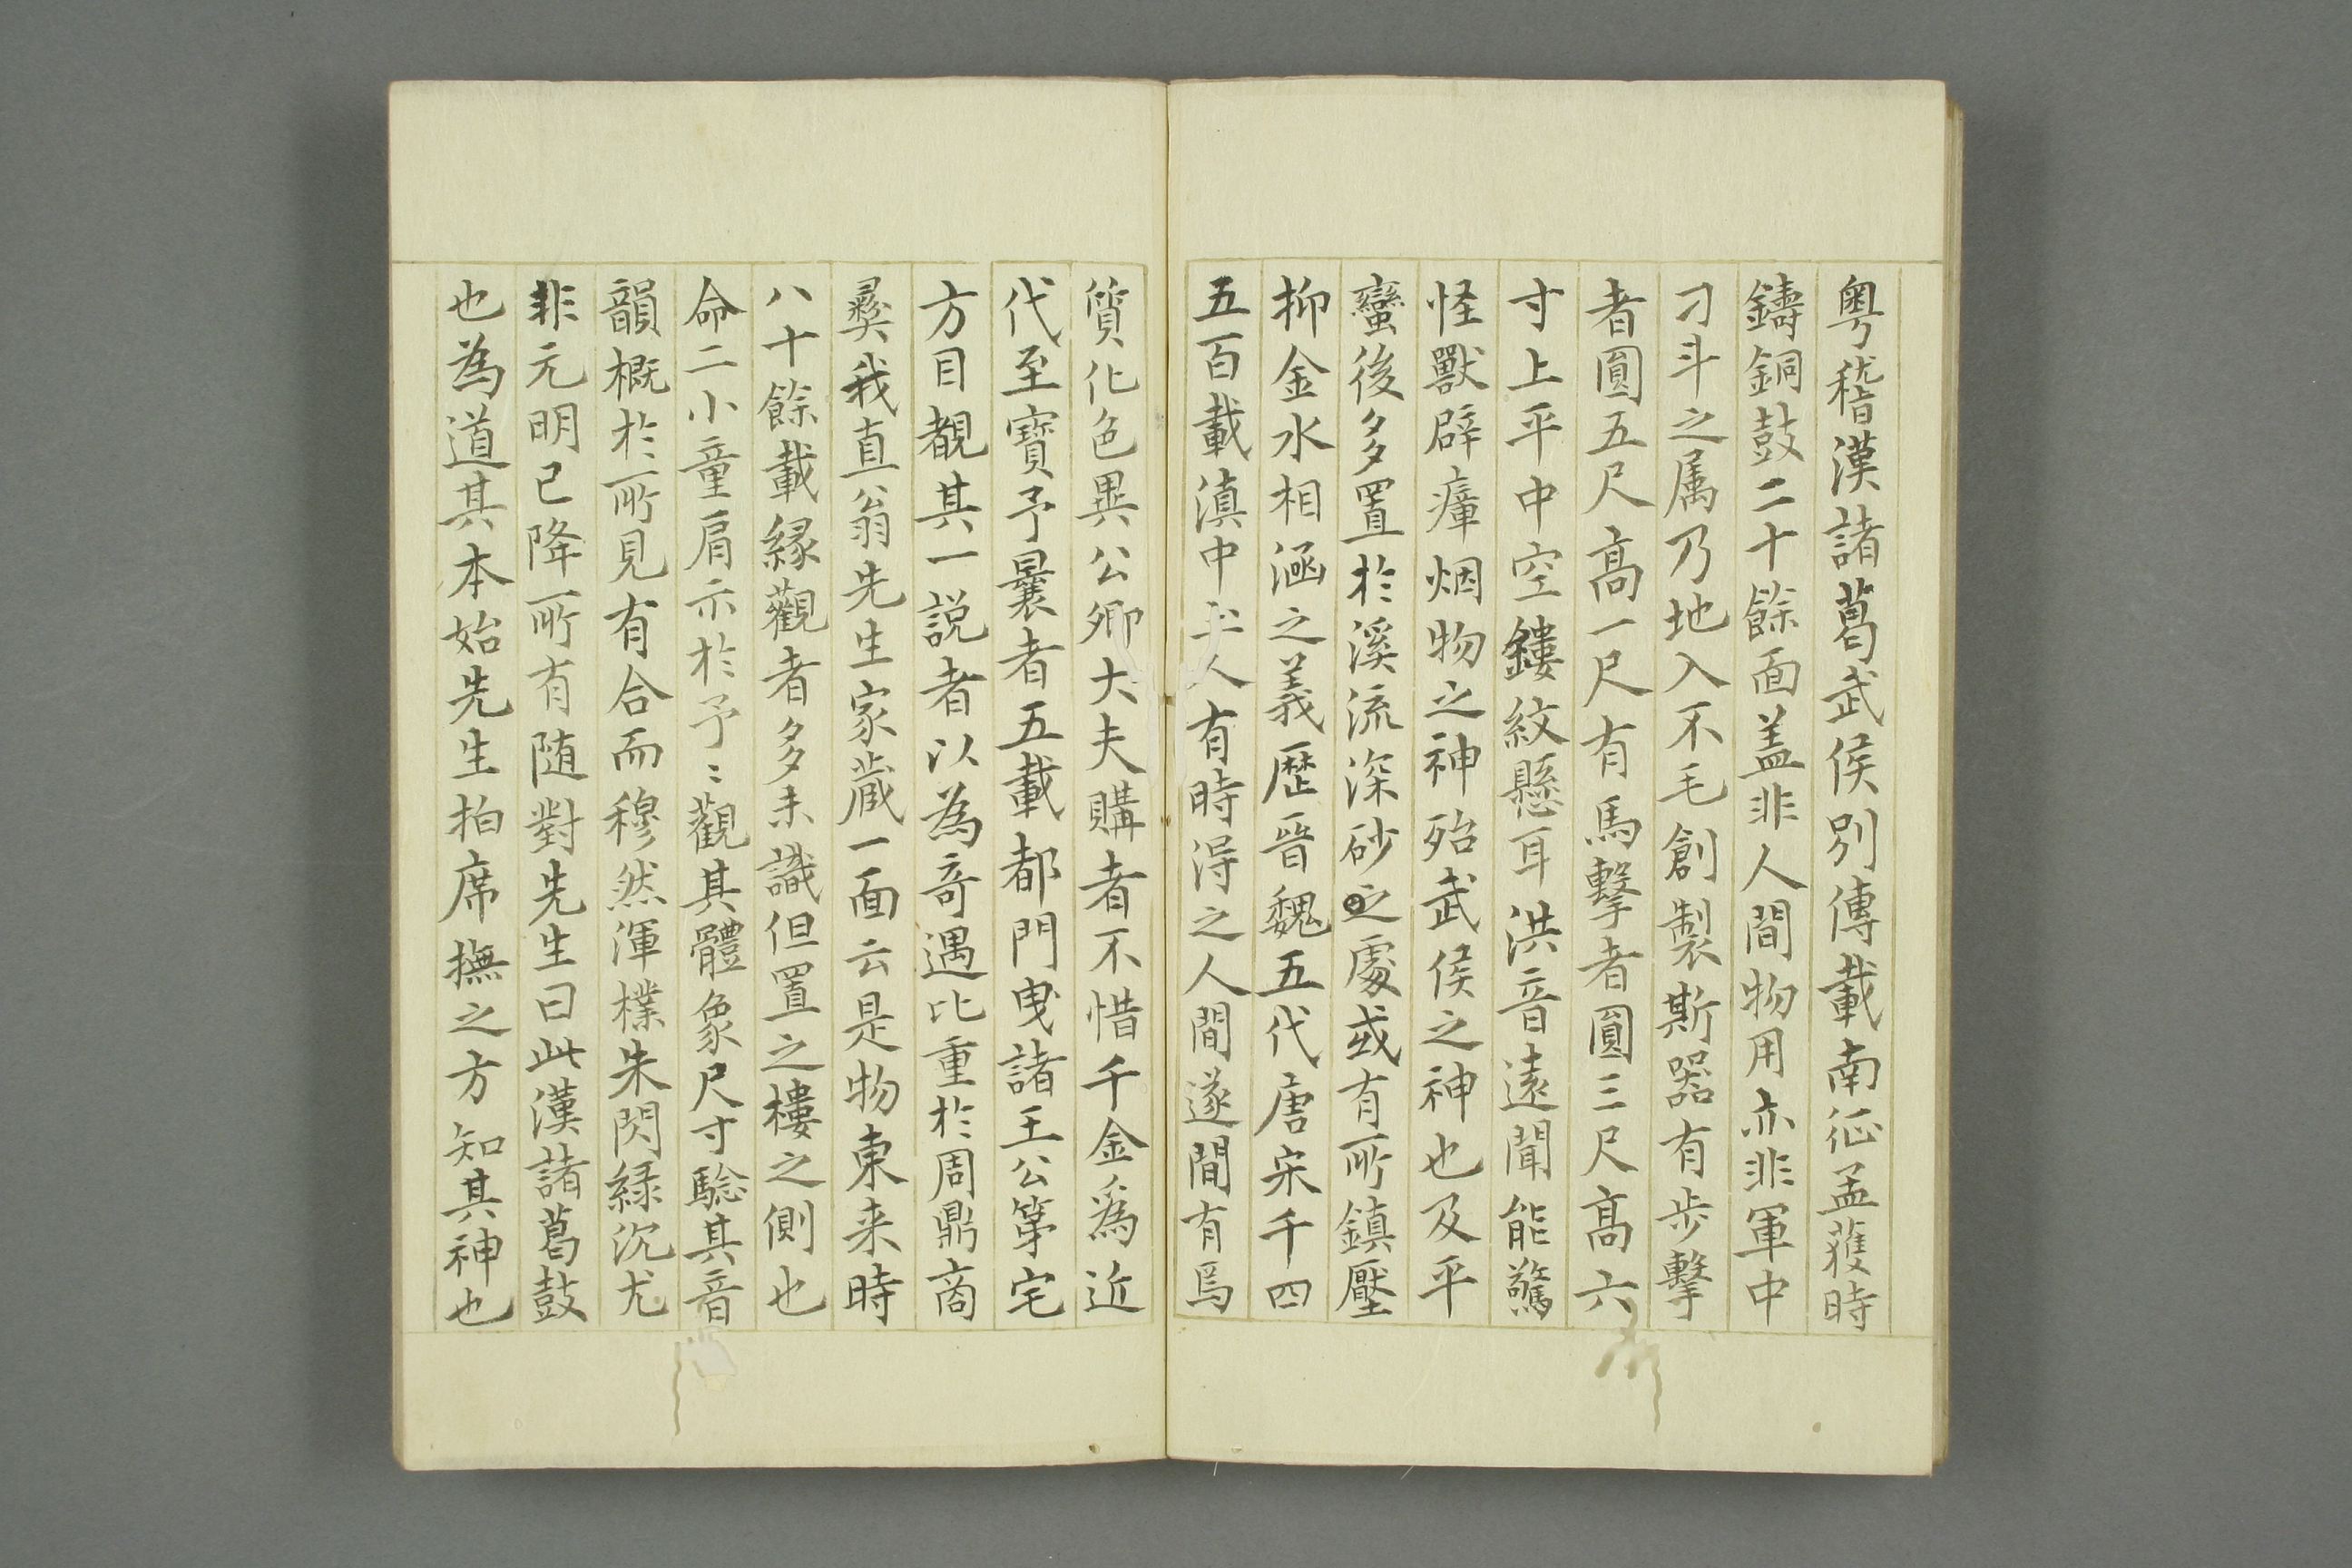 粤稽漢諸葛武侯別傳載南征孟獲時
鑄銅鼓二十餘面盖非人間物用亦非軍中
刁斗之属乃地入不毛創製斯器有歩擊
者圓五尺髙一尺有馬擊者圓三尺髙六
寸上平中空鏤紋懸耳洪音遠聞能驚
怪獸辟瘴烟物之神殆武侯之神也及平
蠻後多置於溪流深砂之處或有所鎮壓
抑金水相涵之義歴晉魏五代唐宋千四
五百載滇中土人有時得之人間遂間有焉
質化色異公卿大夫購者不惜千金爲近
代至寳予曩者五載都門曳諸王公第宅
方目覩其一説者以為竒遇比重於周鼎商
彝我直翁先生家蔵一面云是物東来時
八十餘載縁觀者多未識但置之樓之側也
命二小童肩示於予〻觀其體象尺寸驗其音
韻概於所見有合而穆然渾樸朱閃緑沉尤
非元明已降所有随對先生曰此漢諸葛鼓
也為道其本始先生拍席撫之方知其神也